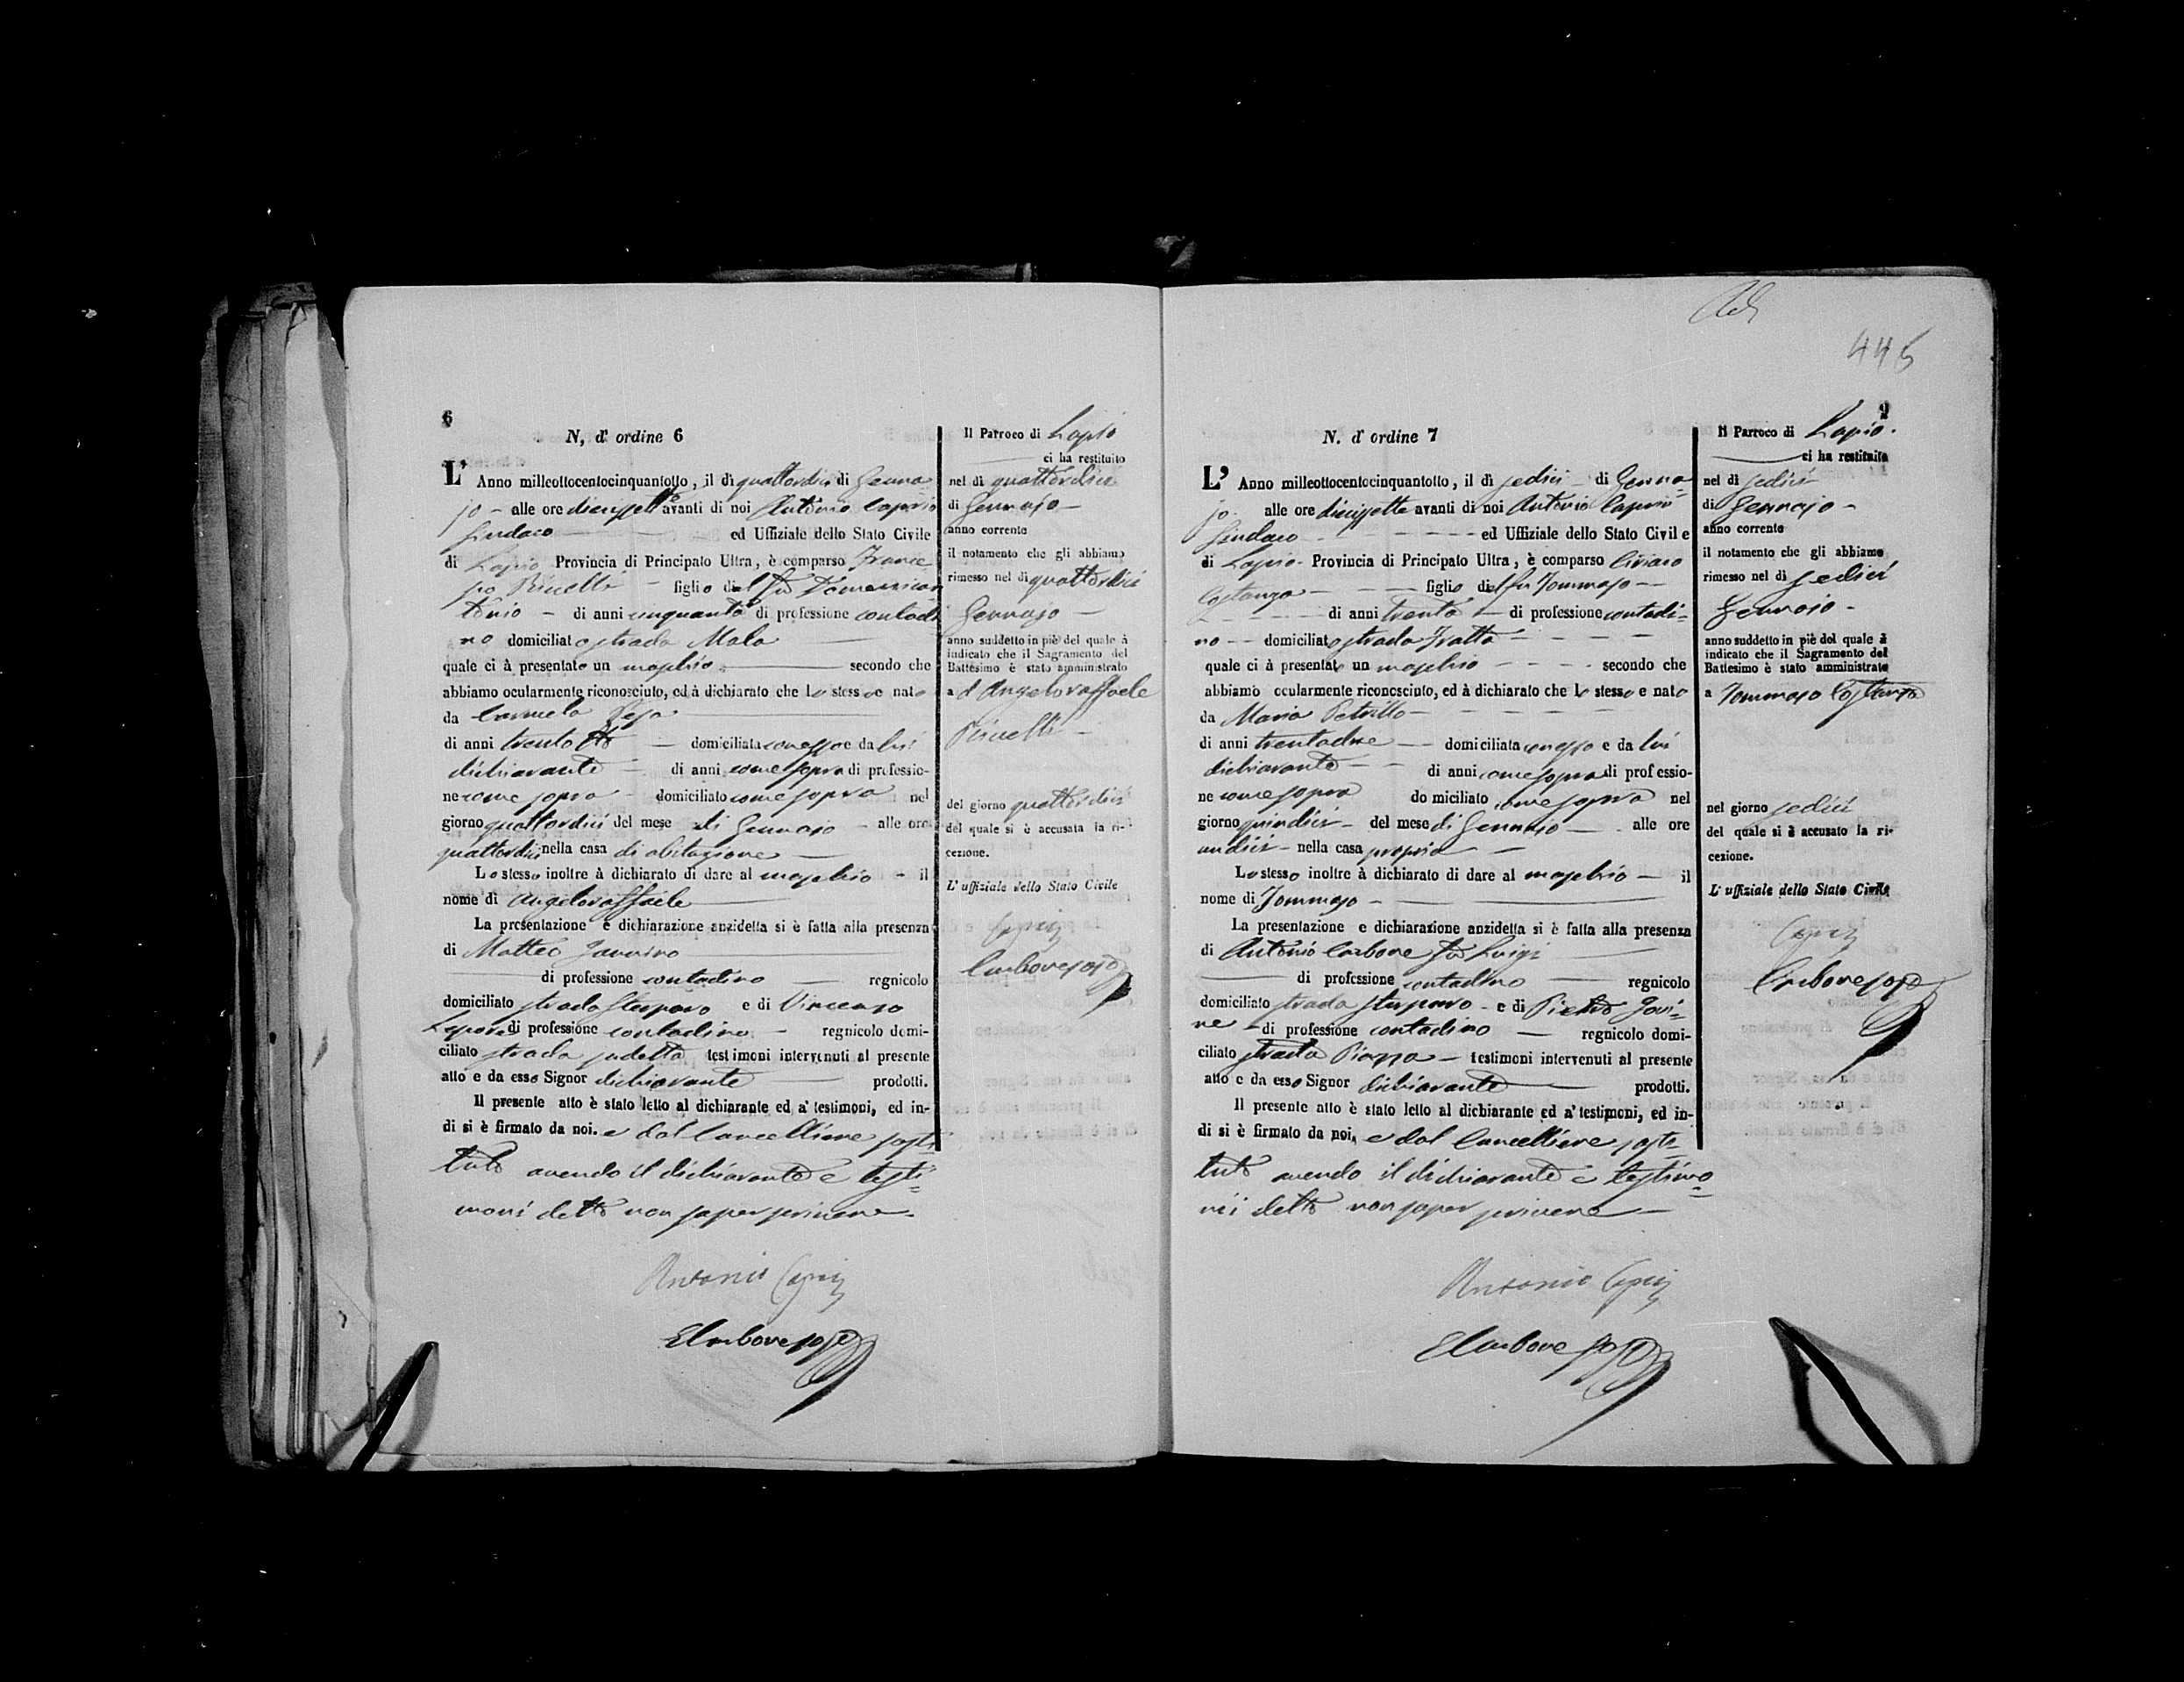 6
N, d' ordine 6
L' Anno milleottocentocinquantotto, il dì quattordici di Genna
jo - alle ore diecissette avanti di noi Antonio Caprio
Sindaco ed Uffiziale dello Stato Civile
di Lapio Provincia di Principato Ultra, è comparso France
figlio del fu Domenican
tonio - di anni cinquanta di professione contadi
no domiciliato strada Mala
quale ci à presentato un maschio secondo che
abbiamo ocularmente riconosciuto, ed à dichiarato che Lo stesso e nato
da Carmela
di anni trentotto domiciliata con esso e da lui
dichiarante di anni come sopra di professio-
ne come sopra domiciliato come sopra nel
giorno quattordici del mese di Gennajo - alle ore
quattordici nella casa di abitazione
Lo stesso inoltre à dichiarato di dare al maschio - il
nome di Angeloraffaele
La presentazione e dichiarazione anzidetta si è fatta alla presenza
di Matteo
di professione contadino regnicolo
domiciliato strada e di Vincenzo
di professione contadino - regnicolo domi-
ciliato strada sudetta testimoni intervenuti al presente
atto e da esso Signor dichiarante prodotti.
Il presente atto è stato letto al dichiarante ed a' testimoni, ed in-
di si è firmato da noi. e dal Cancelliere sosti
tuto avendo il dichiarante e testi=
moni detto non saper scrivere.
Antonio Caprio
ECarbone sosto
Il Parroco di Lapio
ci ha restituito
nel dì quattordici
di Gennajo -
anno corrente
il notamento che gli abbiamo
rimesso nel dì quattordici
Gennajo -
anno suddetto in piè del quale à
indicato che il Sagramento del
Battesimo è stato amministrato
a d Angeloraffaele
del giorno quattordici
del quale si è accusata la ri-
cezione.
L' uffiziale dello Stato Civile
Caprio
Carbone sosto
445
9
N. d' ordine 7
L' Anno milleottocentocinquantotto, il dì sedici di Genna=
jo. alle ore diecissette avanti di noi Antonio Caprio
Sindaco ed Uffiziale dello Stato Civile
di Lapio - Provincia di Principato Ultra, è comparso Ciriaco
Costanza figlio del fu Tommaso
di anni trenta - di professione contadi=
no - domiciliato strada Tratta
quale ci à presentato un maschio - secondo che
abbiamo ocularmente riconosciuto, ed à dichiarato che Lo stesso e nato
da Maria Petrillo
di anni trentadue - domiciliata con esso e da lui
dichiarante - di anni come sopra di professio-
ne come sopra domiciliato come sopra nel
giorno quindici - del mese di Gennajo - alle ore
undici - nella casa propria
Lo stesso inoltre à dichiarato di dare al maschio - il
nome di Tommaso
La presentazione e dichiarazione anzidetta si è fatta alla presenza
di Antonio Carbone fu Luigi
di professione contadino regnicolo
domiciliato strada - e di Pietro Jovi=
ne - di professione contadino - regnicolo domi-
ciliato strada Piazza - testimoni intervenuti al presente
atto e da esso Signor dichiarante prodotti.
Il presente atto è stato letto al dichiarante ed a' testimoni, ed in-
di si è firmato da noi, e dal Cancelliere sosti=
tuto avendo il dichiarante e testimo=
nii detto non saper scrivere
Antonio Caprio
ECarbone sosto
Il Parroco di Lapio.
ci ha restituito
nel dì sedici
di Gennajo -
anno corrente
il notamento che gli abbiamo
rimesso nel dì sedici
Gennajo -
anno suddetto in piè del quale à
indicato che il Sagramento del
Battesimo è stato amministrato
a Tommaso Costanza
nel giorno sedici
del quale si è accusato la ri-
cezione.
L' uffiziale dello Stato Civile
Caprio
Carbone sosto